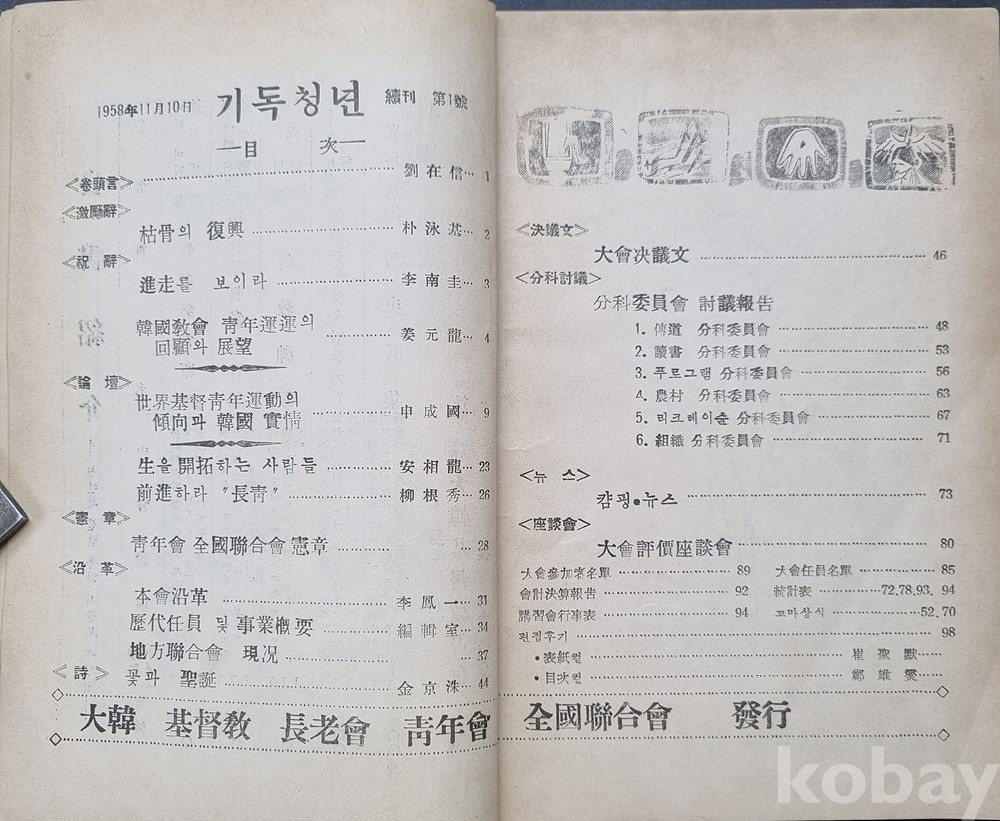 1958年11月10日 기독청년 續刊 第1號
—目 次—
<卷頭言> 劉在信 1
<激勵辭>
枯骨의 復興 朴泳基 2
<祝辭>
進走를 보이라 李南圭 3
韓國敎會 靑年運運의
回顧와 展望 姜元龍 4
<論壇>
世界基督靑年運動의
傾向과 韓國 實情 申成國 9
生을 開拓하는 사람들 安相龍 23
前進하라 "長靑" 柳根秀 26
<憲章>
靑年會 全國聯合會 憲章 28
<沿革>
本會沿革 李鳳一 31
歷代任員 및 事業概要 編輯室 34
地方聯合會 現況 37
<詩> 꽃과 聖誕 金京洙 44
<決議文>
大會決議文 46
<分科討議>
分科委員會 討議報告
1. 傳道 分科委員會 48
2. 讀書 分科委員會 53
3. 푸로그램 分科委員會 56
4. 農村 分科委員會 63
5. 리크레이슌 分科委員會 67
6. 組織 分科委員會 71
<뉴스>
캼핑•뉴스 73
<座談會>
大會評價座談會 80
大會參加者名單 89 大會任員名單 85
會計決算報告 92 統計表 72.78.93.94
講習會行事表 94 꼬마상식 52.70
편집후기 98
•表紙컽 崔聖默
•目次컽 鄭雄燮
大韓 基督敎 長老會 靑年會 全國聯合會 發行
kobay